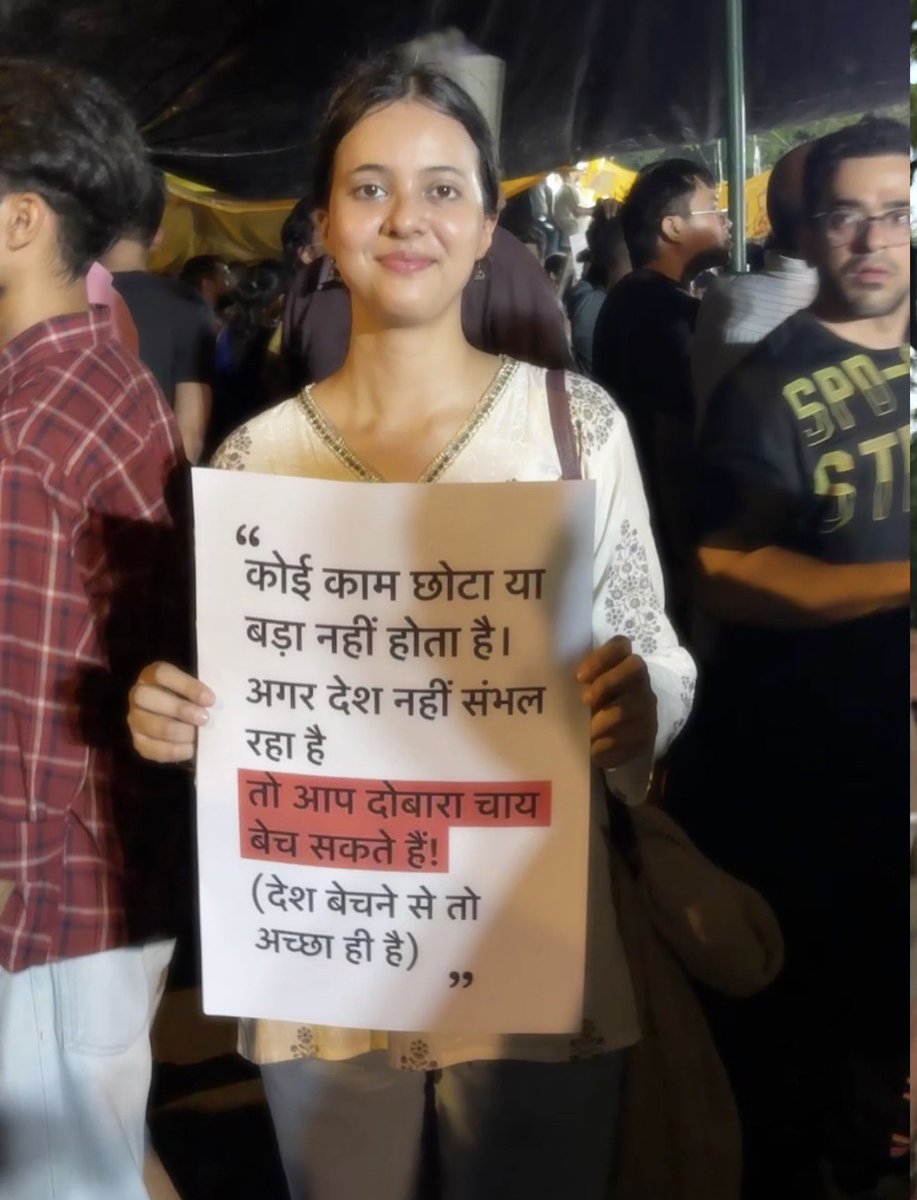 “
कोई काम छोटा या
बड़ा नहीं होता है।
अगर देश नहीं संभल
रहा है
तो आप दोबारा चाय
बेच सकते हैं!
(देश बेचने से तो
अच्छा ही है)
”